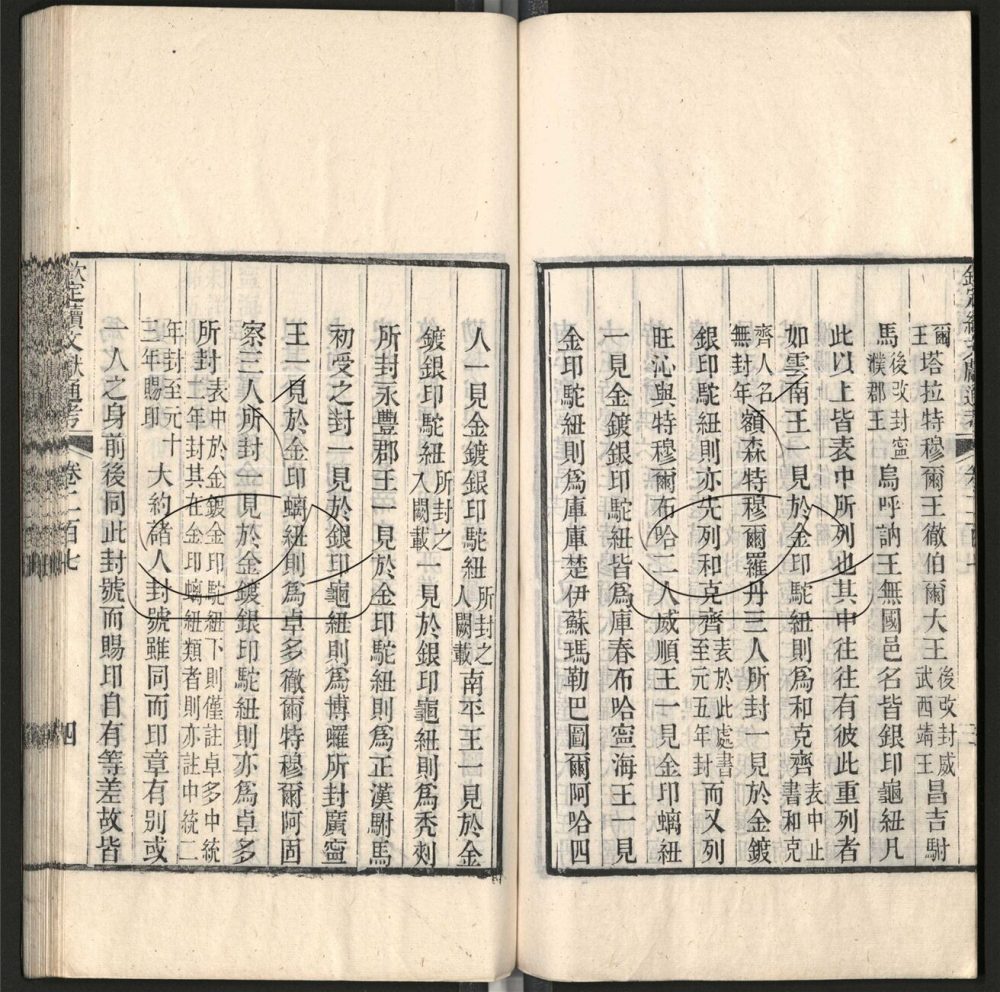 爾王塔拉特穆爾王徹伯爾大王後改封威武西靖王昌吉駙
馬後改封寧濮郡王烏呼訥王無國邑名皆銀印龜紐凡
此以上皆表中所列也其中往往有彼此重列者
如雲南王一見於金印駝紐則為和克齊表中止書和克
齊人名無封年額森特穆爾羅丹三人所封一見於金鍍
銀印駝紐則亦先列和克齊表於此處書至元五年封而又列
旺沁與特穆爾布哈二人威順王一見金印螭紐
一見金鍍銀印駝紐皆為庫春布哈寧海王一見
金印駝紐則為庫庫楚伊蘇瑪勒巴圖爾阿哈四
人一見金鍍銀印駝紐所封之人闕載南平王一見於金
鍍銀印駝紐所封之人闕載一見於銀印龜紐則為禿剌
所封永豐郡王一見於金印駝紐則為正漢駙馬
初受之封一見於銀印龜紐則為博囉所封廣寧
王一見於金印螭紐則為卓多徹爾特穆爾阿固
察三人所封一見於金鍍銀印駝紐則亦為卓多
所封表中於金鍍金印駝紐下則僅註卓多中統二年封其在金印螭紐類者則亦註中統二
年封至元十三年賜印大約諸人封號雖同而印章有別或
一人之身前後同此封號而賜印自有等差故皆
欽定續文獻通考
卷二百七
四